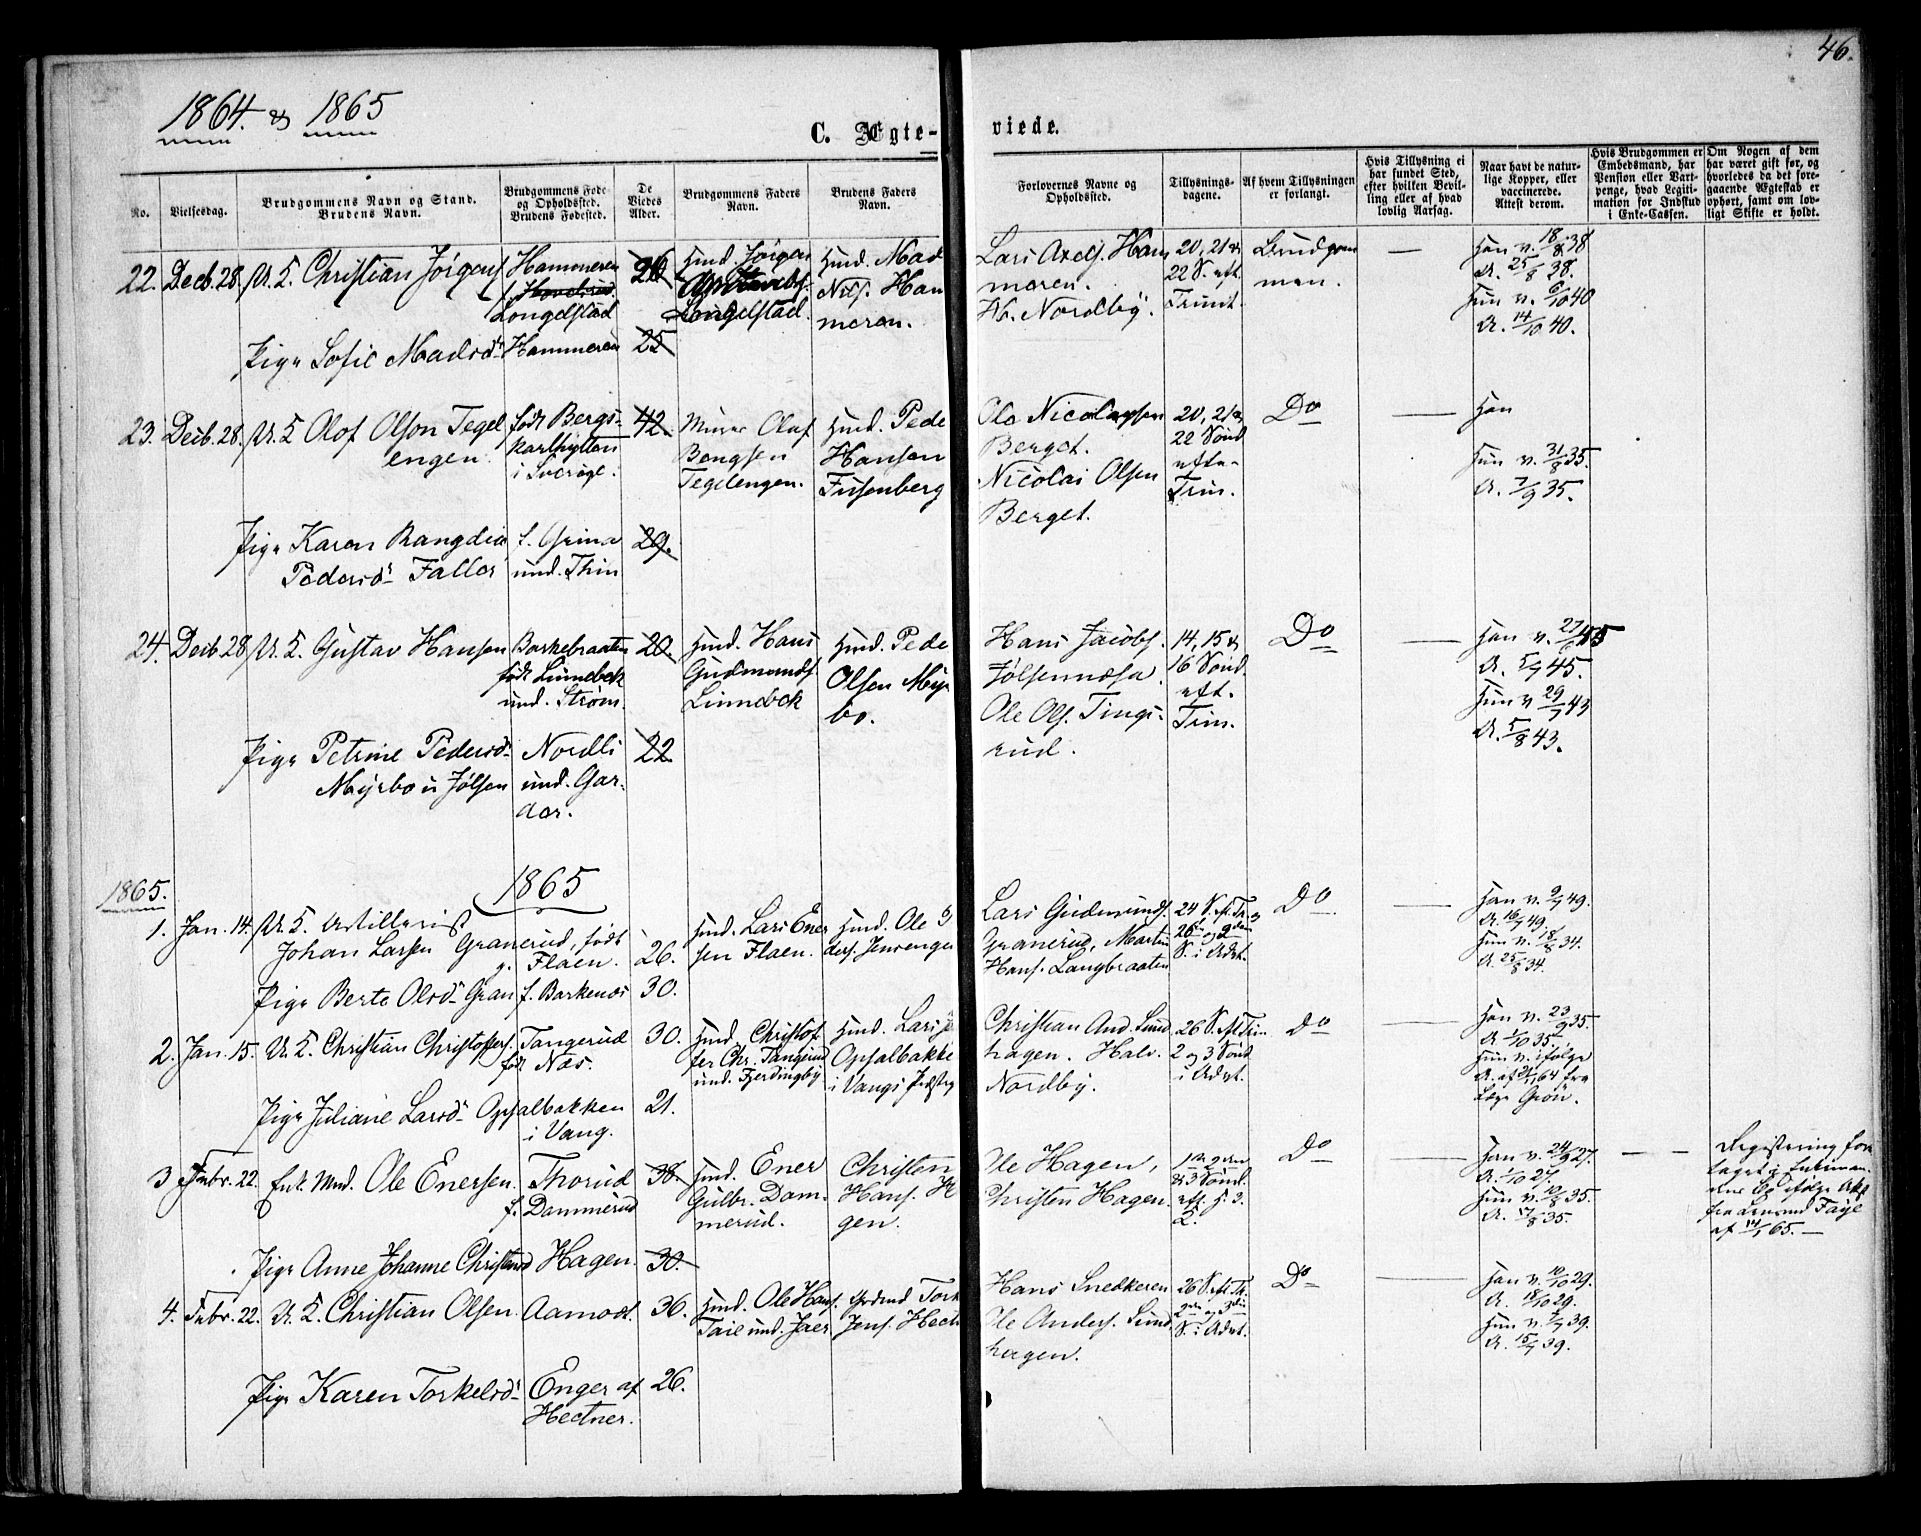 46.
1864. & 1865
C. Ægte-
viede.
No.
Vielsesdag.
Brudgommens Navn og Stand.
Brudens Navn.
Brudgommens Føde-
og Opholdssted.
Brudens Fødested.
De
Viedes
Alder.
Brudgommens Faders
Navn.
Brudens Faders
Navn.
Forlovernes Navne og
Opholdssted.
Tillysnings-
dagene.
Af hvem Tillysningen
er forlangt.
Hvis Tillysning ei
har fundet Sted,
efter hvilken Bevil-
ling eller af hvad
lovlig Aarsag.
Naar havt de natur-
lige Kopper, eller
vaccinerede.
Attest derom.
Hvis Brudgommen er
Embedsmand, har
Pension eller Vart-
penge, hvad Legiti-
mation for Indskud
i Enke-Cassen.
Om Nogen af dem
har været gift før, og
hvorledes da det fore-
gaaende Ægteskab er
ophørt, samt om lov-
ligt Skifte er holdt.
22. Decb. 28. U. K. Christian Jørgens. Hammeren
f. Hovelsrud
Longelstad
26
Hmd. Jørgen
Longelstad.
Hmd. Mad
Nils. Ham
meren.
Lars Axels. Ham
meren.
H. Nordby.
20, 21 &
22 S. eft.
Trinit.
Brudgom
men.
Han v. 18/8 38
A. 25/8 38.
Hun v. 6/10 40
A. 14/10 40.
Pige Sofie Madsd. Hammeren 25
23. Decb. 28. U. K. Olof Olson Tegel
engen.
født Bergs-
karlhyttan
i Sverige.
42.
Murer Olof
Bengsen
Tegelengen.
Hmd. Pede
Hansen
Fusenberg
Ole Nicolaysen
Berget.
Nicolai Olsen
Berget.
20, 21 &
22 Sønd
efter
Trin.
Do
Han
Hun v. 31/8 35.
A. 7/9 35.
Pige Karen Rangdia
Pedersd. Faller
f. Grina
und. Thin
29.
24. Decb 28 U. K. Gustav Hansen Barkebraaten
født Linnebek
und. Strøm.
20.
Hmd. Hans
Gudmunds.
Linnebek
Hmd. Pede
Olsen Myr
bo.
Hans Jacobs.
Jølsennæsa.
Ole Ols. Tings-
rud.
14, 15 &
16 Sønd.
eft.
Trin.
Do
Han v. 27/6 45
A. 5/7 45.
Hun v 29/7 43
A. 5/8 43.
Pige Petrine Pedersd.
Myrbo u Jølsen
Nordli
und. Gar-
der.
22
1865.
1865
1. Jan. 14. U. K. Artillerist
Johan Larsen Granerud, født
Flaen.
26.
Hmd. Lars Ener
sen Flaen.
Hmd. Ole
ders. Jenrenget
Lars Gudmunds.
Granerud, Martin
Hans. Langbraaten
24 S. eft. Tr.,
S. i Advt.
Do
Han v. 9/7 49.
A. 16/7 49.
Hun v. 18/8 34.
A. 25/8 34.
Pige Berte Olsd. Gran f. Barkenæs 30.
2. Jan. 15. U. K. Christian Christoffers. Tangerud
født Næs.
30.
Hmd. Christof
fer Chr. Tangerud
und. Fjerdingby
Hmd. Lars
Opsalbakke
i Vangs Prstgj
Christian And. Sund
hagen. Halv.
Nordby.
26 S. eft Trin.
2 og 3 Sønd
i Advt.
Do
Han v. 23/9 35.
A. 1/10 35.
Hun v. ifølge
A. af 64 fra
Læge Grøn.
Pige Juliane Larsd. Opsalbakken
i Vang.
21.
3 Febr. 22. Enk. Md. Ole Enersen. Thorud
f. Dammerud
38.
Hmd. Ener
Gulbr. Dam-
merud.
Christen
Hans. H
gen.
Ole Hagen,
Christen Hagen.
1ste 2den
& 3 Sønd.
eft. H. 3.
K.
Do
Han v. 24/9 27.
A. 1/10 27.
Hun v. 10/8 35.
A. 17/8 35.
Registrering fore
taget i Enkeman
dens Bo ifølge Atst
fra Lensmd Faye
af 14/1 65.
Pige Anne Johanne Christensd Hagen. 30.
4. Febr. 22. U. K. Christian Olsen. Aamodt. 36.
Hmd. Ole Hans.
Taie und. Jaer
Grdmd Tork
Jens. Hect
Hans Snedkeren
Ole Anders. Sund
hagen.
26 S. eft. Tr.
2den og 3die
S. i Advt.
Do
Han v. 10/10 29.
A. 18/10 29.
Hun v. 39.
A. 15/7 39.
Pige Karen Torkelsd. Enger af
Hectner.
26.